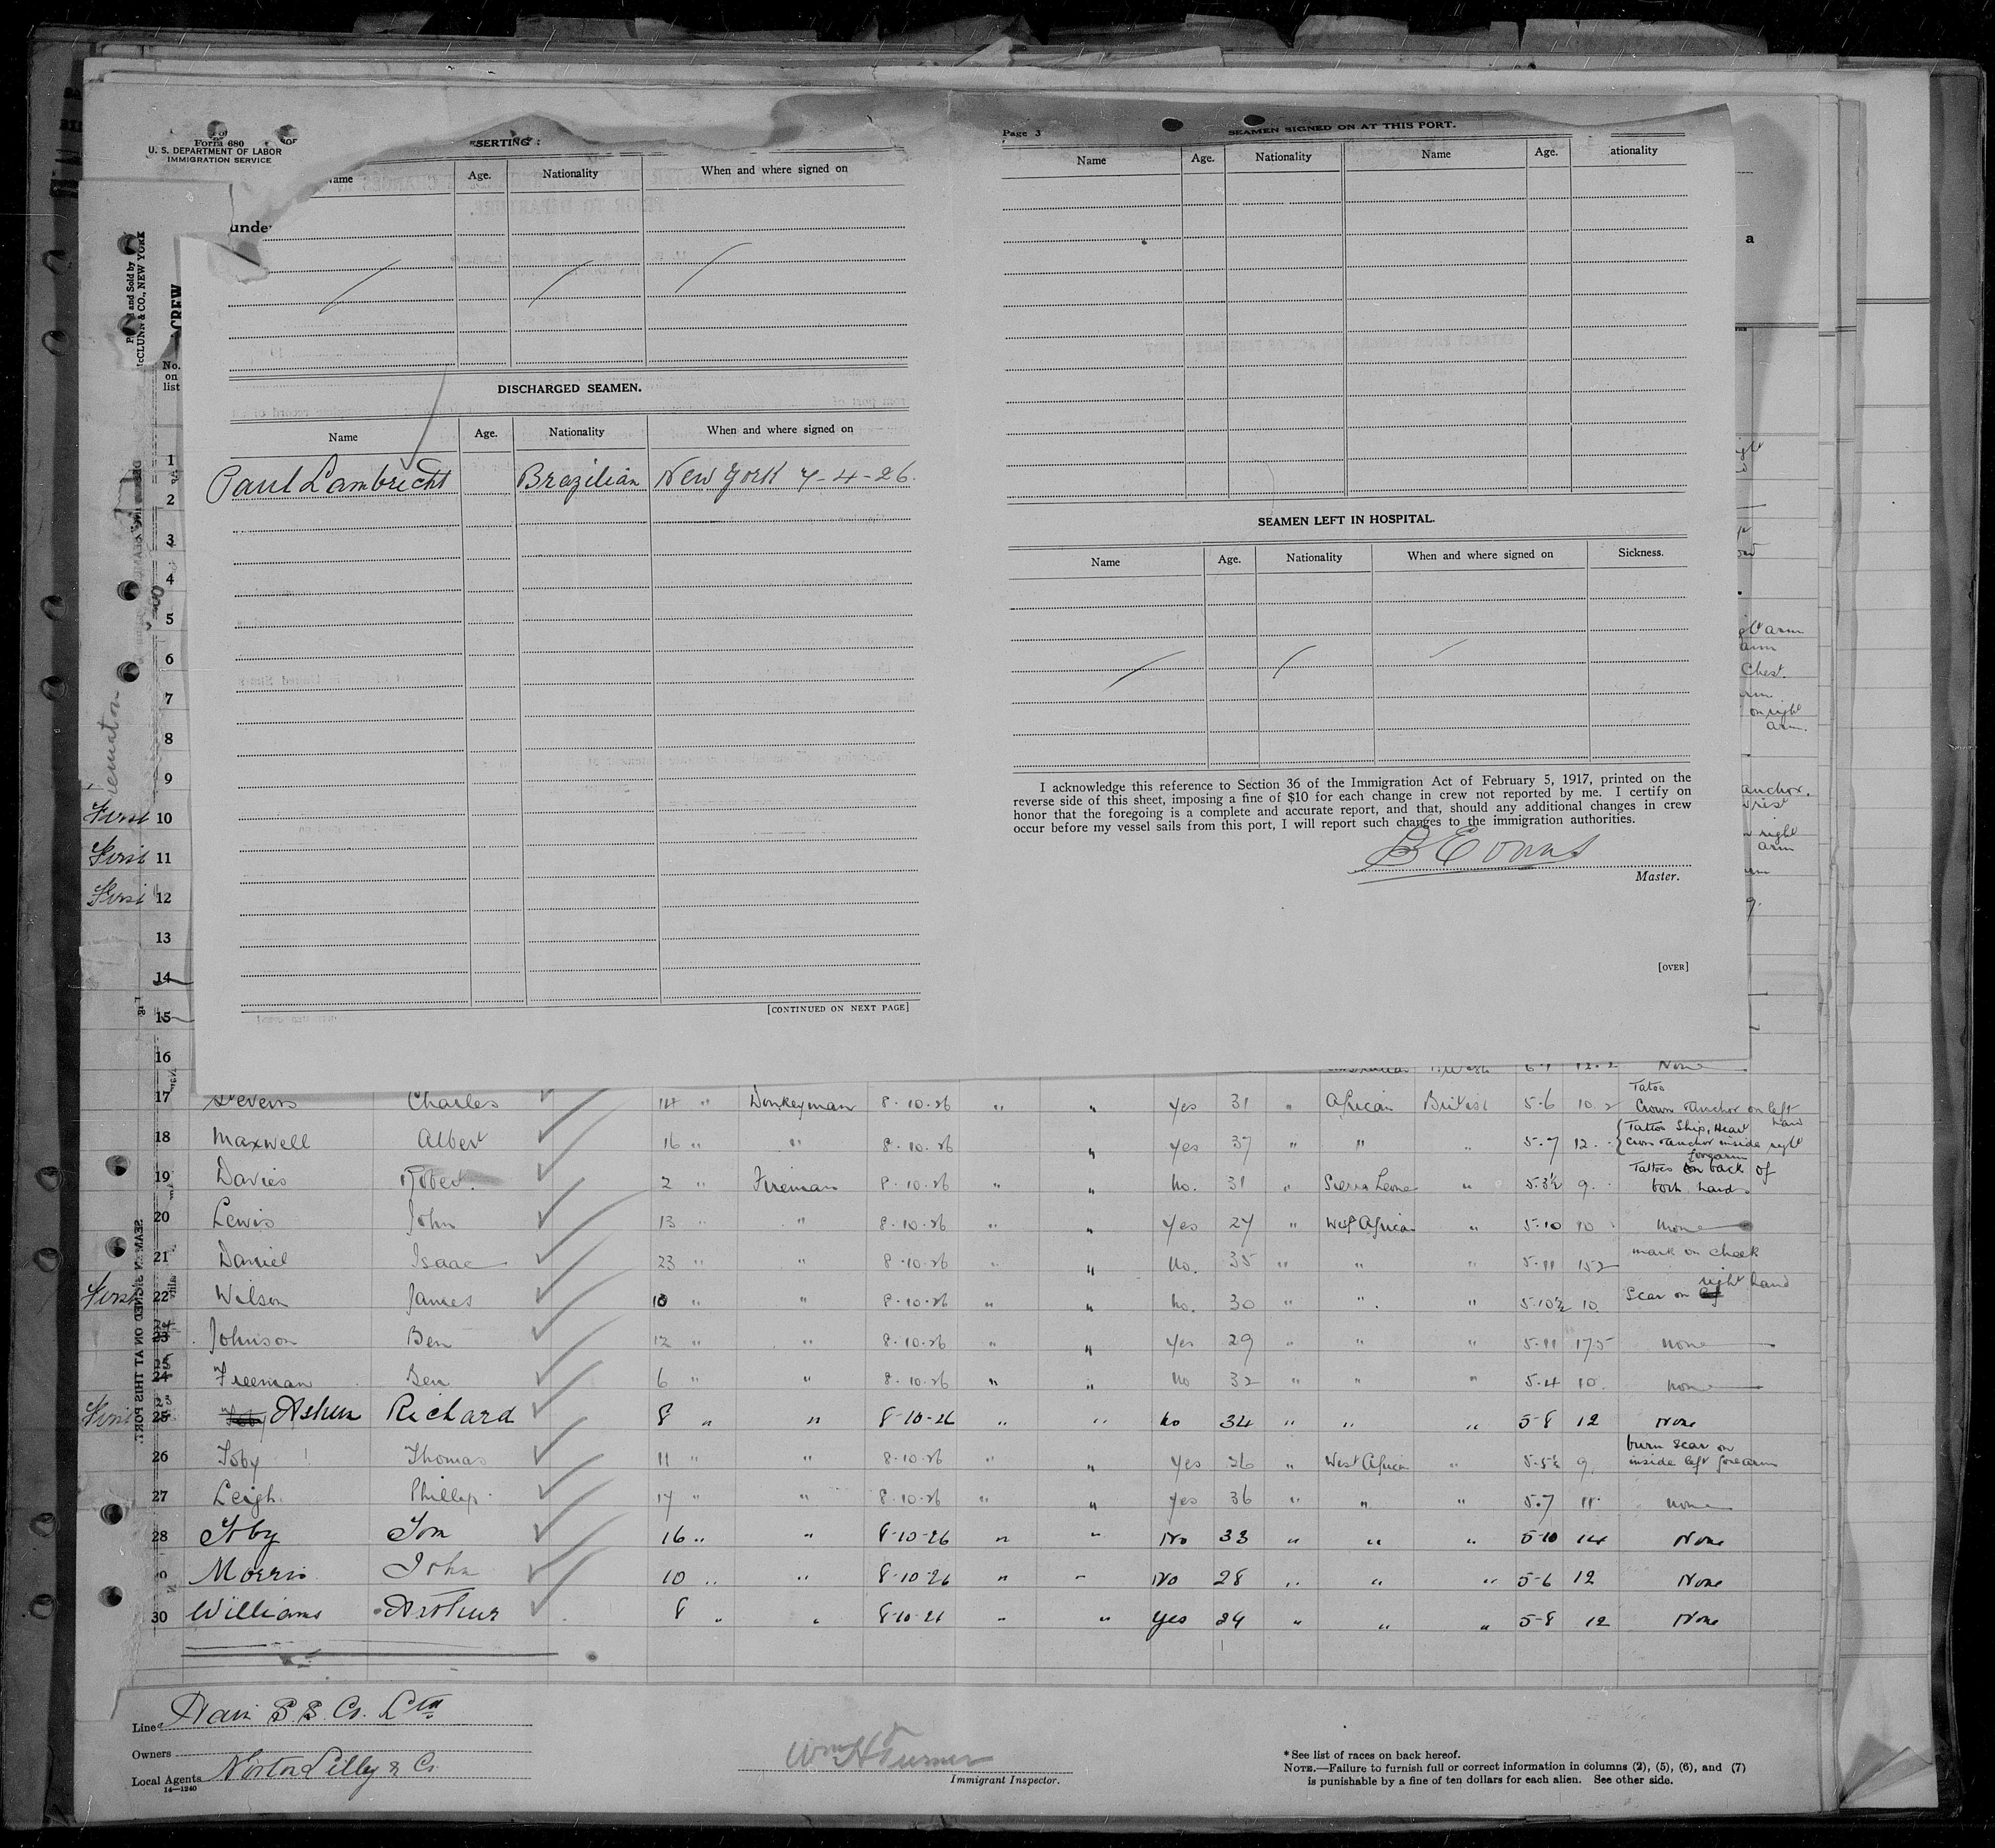 Form 680
U. S. DEPARTMENT OF LABOR
IMMIGRATION SERVICE
SERTING:
ame Age. Nationality When and where signed on
unde
DISCHARGED SEAMEN.
Name Age. Nationality When and where signed on
Paul Lambricht Brazilian New York 7-4-26.
[CONTINUED ON NEXT PAGE]
Page 3 SEAMEN SIGNED ON AT THIS PORT.
Name Age. Nationality Name Age. ationality
SEAMEN LEFT IN HOSPITAL.
Name Age. Nationality When and where signed on Sickness.
I acknowledge this reference to Section 36 of the Immigration Act of February 5, 1917, printed on the
reverse side of this sheet, imposing a fine of $10 for each change in crew not reported by me. I certify on
honor that the foregoing is a complete and accurate report, and that, should any additional changes in crew
occur before my vessel sails from this port, I will report such changes to the immigration authorities.
B Evans
Master.
[OVER]
and Sold by
McCLUNN & CO., NEW YORK
CREW
No.
on
list
1
2
3
4
5
6
7
8
9
First 10
First 11
First 12
13
14
15
16 None
17 Stevens Charles 14 " Donkeyman 8-10-26 " " Yes 31 " African British 5-6 10.2 Tatoo Crown & anchor on left hand
18 Maxwell Albert 16 " " 8-10-26 " Yes 37 " " " 5-7 12 Tattoo Ship, Heart Cross & anchor inside right forearm
19 Davies Robert 2 " Fireman 8-10-26 " " No. 31 " Sierra Leone " 5-3½ 9 Tattoos on back of both hands
20 Lewis John 13 " " 8-10-26 " " Yes 27 " West African " 5-10 10 None
21 Daniel Isaac 23 " " 8-10-26 " " No. 35 " " " 5-11 152 mark on cheek
First 22 Wilson James 10 " " 8-10-26 " " No. 30 " " " 5-10½ 10 Scar on right hand
23 Johnson Ben 12 " " 8-10-26 " " Yes 29 " " " 5-11 175 none
24 Freeman Ben 6 " " 8-10-26 " " No 32 " " " 5-4 10 none
First 25 Richard 8 " " 8-10-26 " " No 34 " " " 5-8 12 None
26 Toby Thomas 11 " " 8-10-26 " " Yes 36 " West African " 5-5½ 9 burn scar on inside left forearm
27 Leigh Phillip 17 " " 8-10-26 " " Yes 36 " " " 5-7 11 none
28 Toby Tom 16 " " 8-10-26 " " No 33 " " " 5-10 14 None
Morris John 10 " " 8-10-26 " " No 28 " " " 5-6 12 None
30 Williams Arthur 8 " " 8-10-26 " " Yes 24 " " " 5-8 12 None
Line S.S. Co. Ltd
Owners
Local Agents Norton Lilly & Co
14—1240
Wm H Turner
Immigrant Inspector.
* See list of races on back hereof.
NOTE.—Failure to furnish full or correct information in columns (2), (5), (6), and (7)
is punishable by a fine of ten dollars for each alien. See other side.